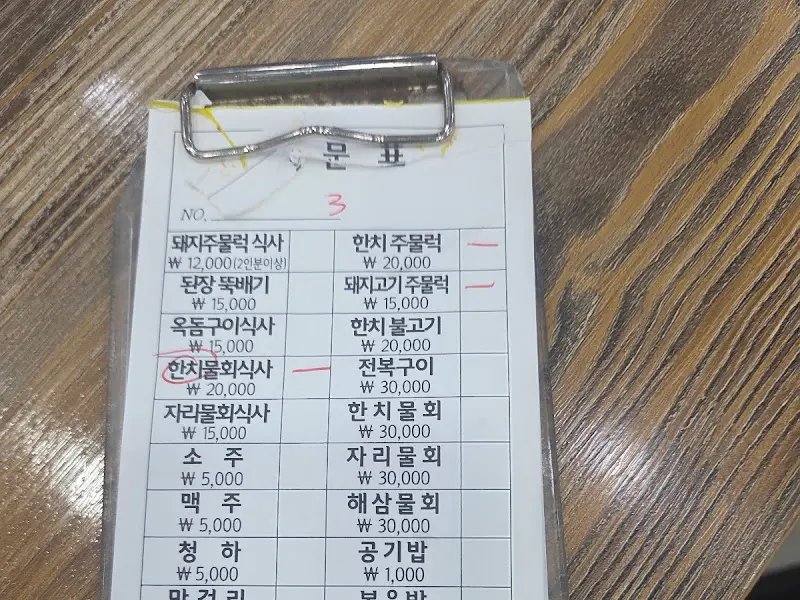 문 표
NO. 3
돼지주물럭 식사 한치 주물럭 —
₩ 12,000(2인분이상) ₩ 20,000
된장 뚝배기 돼지고기 주물럭 —
₩ 15,000 ₩ 15,000
옥돔구이식사 한치 불고기
₩ 15,000 ₩ 20,000
한치물회식사 — 전복구이
₩ 20,000 ₩ 30,000
자리물회식사 한치물회
₩ 15,000 ₩ 30,000
소 주 자리물회
₩ 5,000 ₩ 30,000
맥 주 해삼물회
₩ 5,000 ₩ 30,000
청 하 공기밥
₩ 5,000 ₩ 1,000